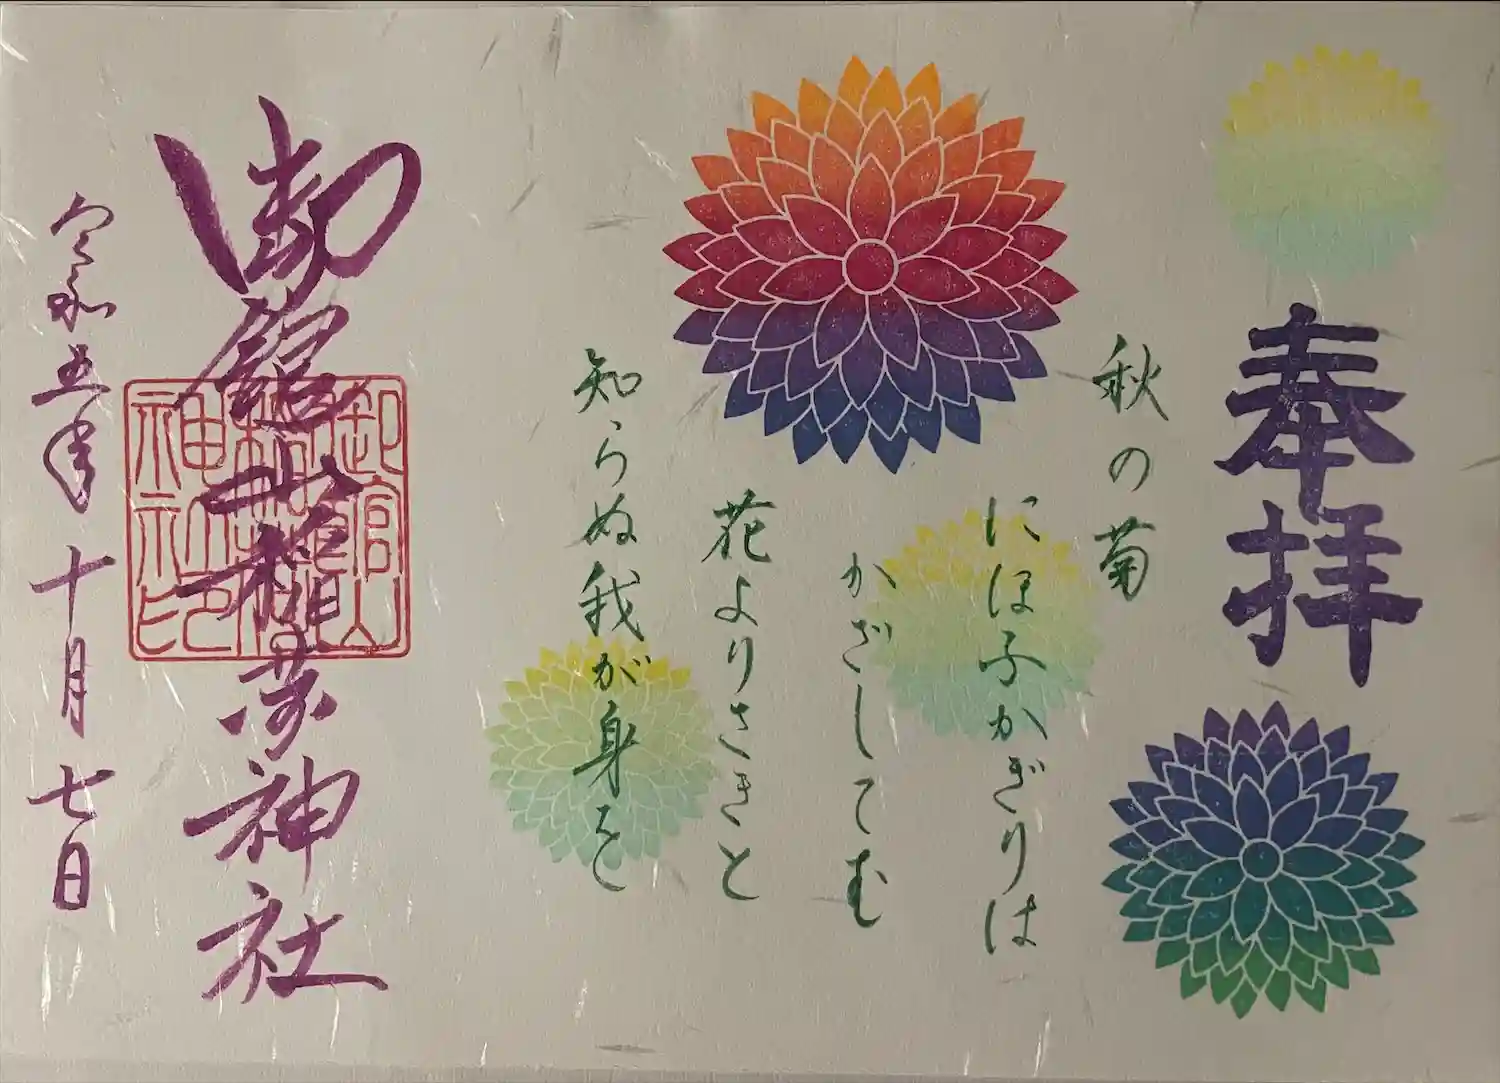 奉拝
秋の菊
にほふかぎりは
かざしてむ
花よりさきと
知らぬ我が身を
御館山稲荷神社
御館山稲荷神社印
令和五年十月七日